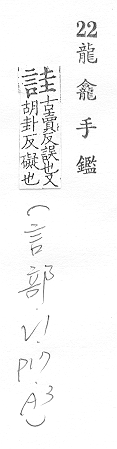 22龍龕手鑑
詿古賣反誤也又
胡卦反礙也
(言部.V1
P17.A3)